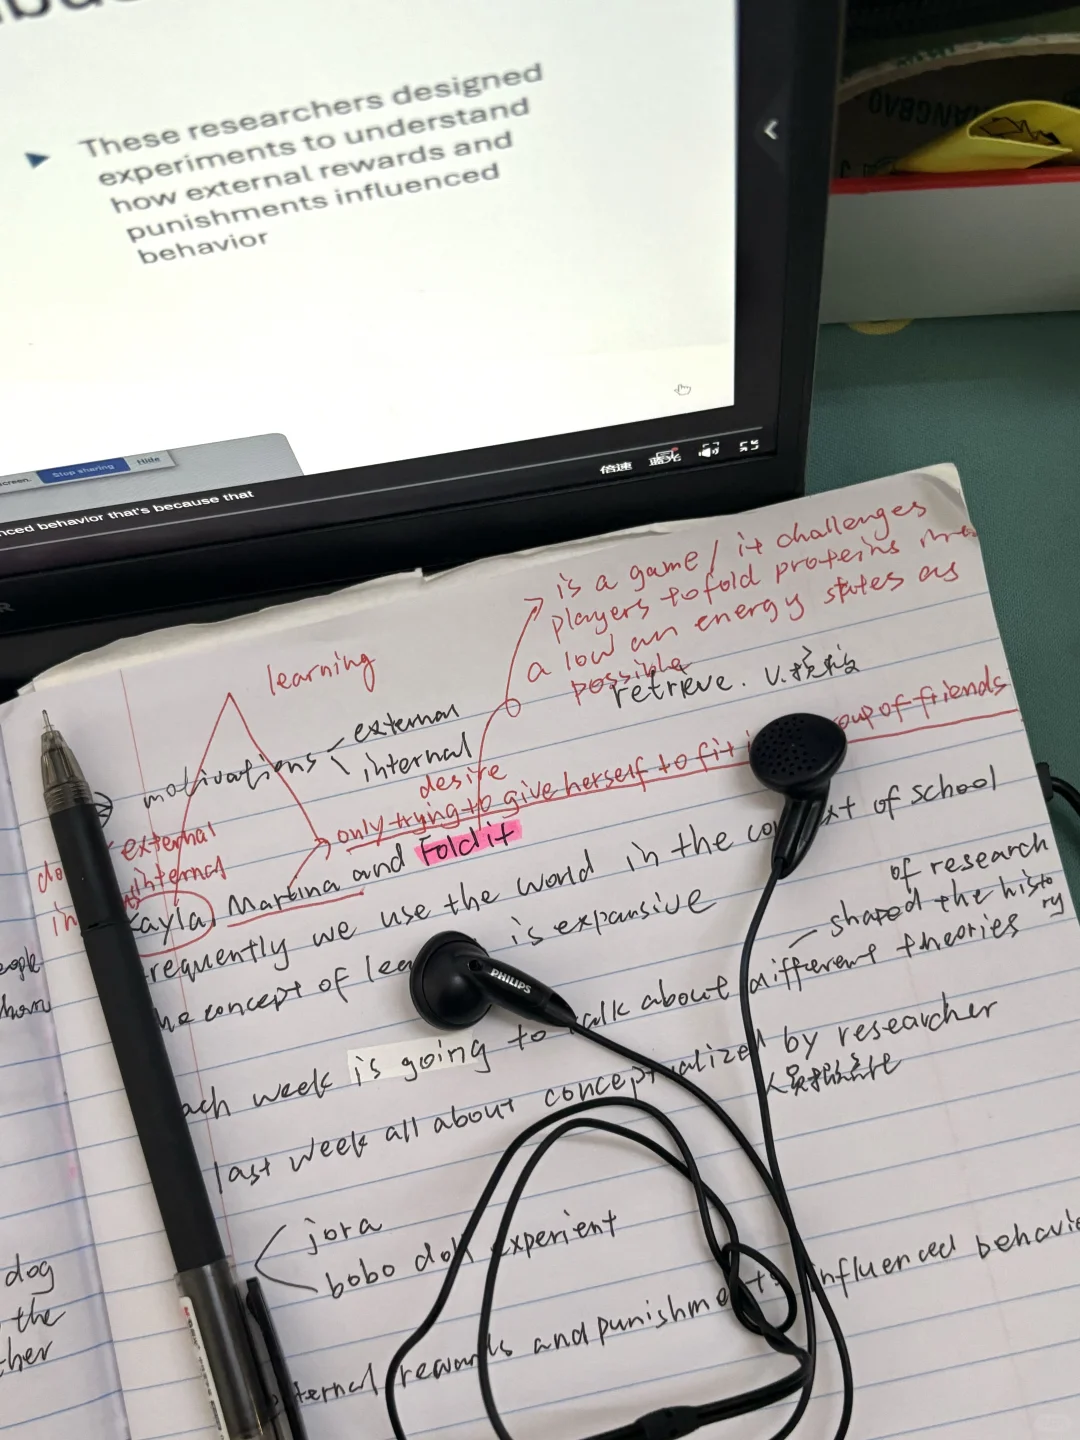 These researchers designed
experiments to understand
how external rewards and
punishments influenced
behavior
screen.
Stop sharing
Hide
倍速
蓝光
nced behavior that's because that
R
is a game / it challenges
players to fold proteins
a low an energy states as
possible
retrieve. v.
learning
motivations
external
internal
desire
only trying to give herself to fit i oup of friends
external
internal
do
in
Kayla, Martina and Foldit
requently we use the world in the co xt of school
he concept of lea is expansive
of research
shaped the history
ach week is going to talk about different theories
last week all about conceptualized by researcher
人员
jora
bobo doll experient
ternal rewards and punishments influenced behavio
PHILIPS
eople
dog
the
ther